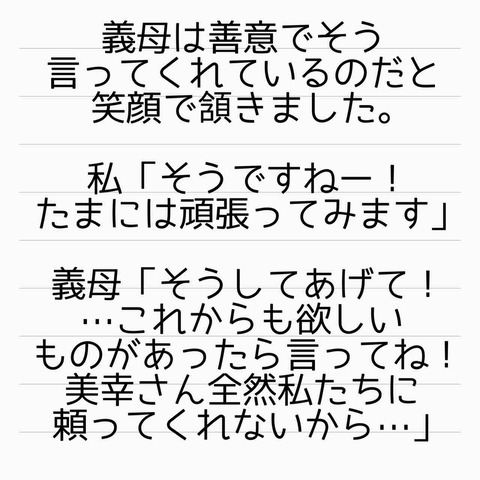 義母は善意でそう
言ってくれているのだと
笑顔で頷きました。
私「そうですねー！
たまには頑張ってみます」
義母「そうしてあげて！
…これからも欲しい
ものがあったら言ってね！
美幸さん全然私たちに
頼ってくれないから…」